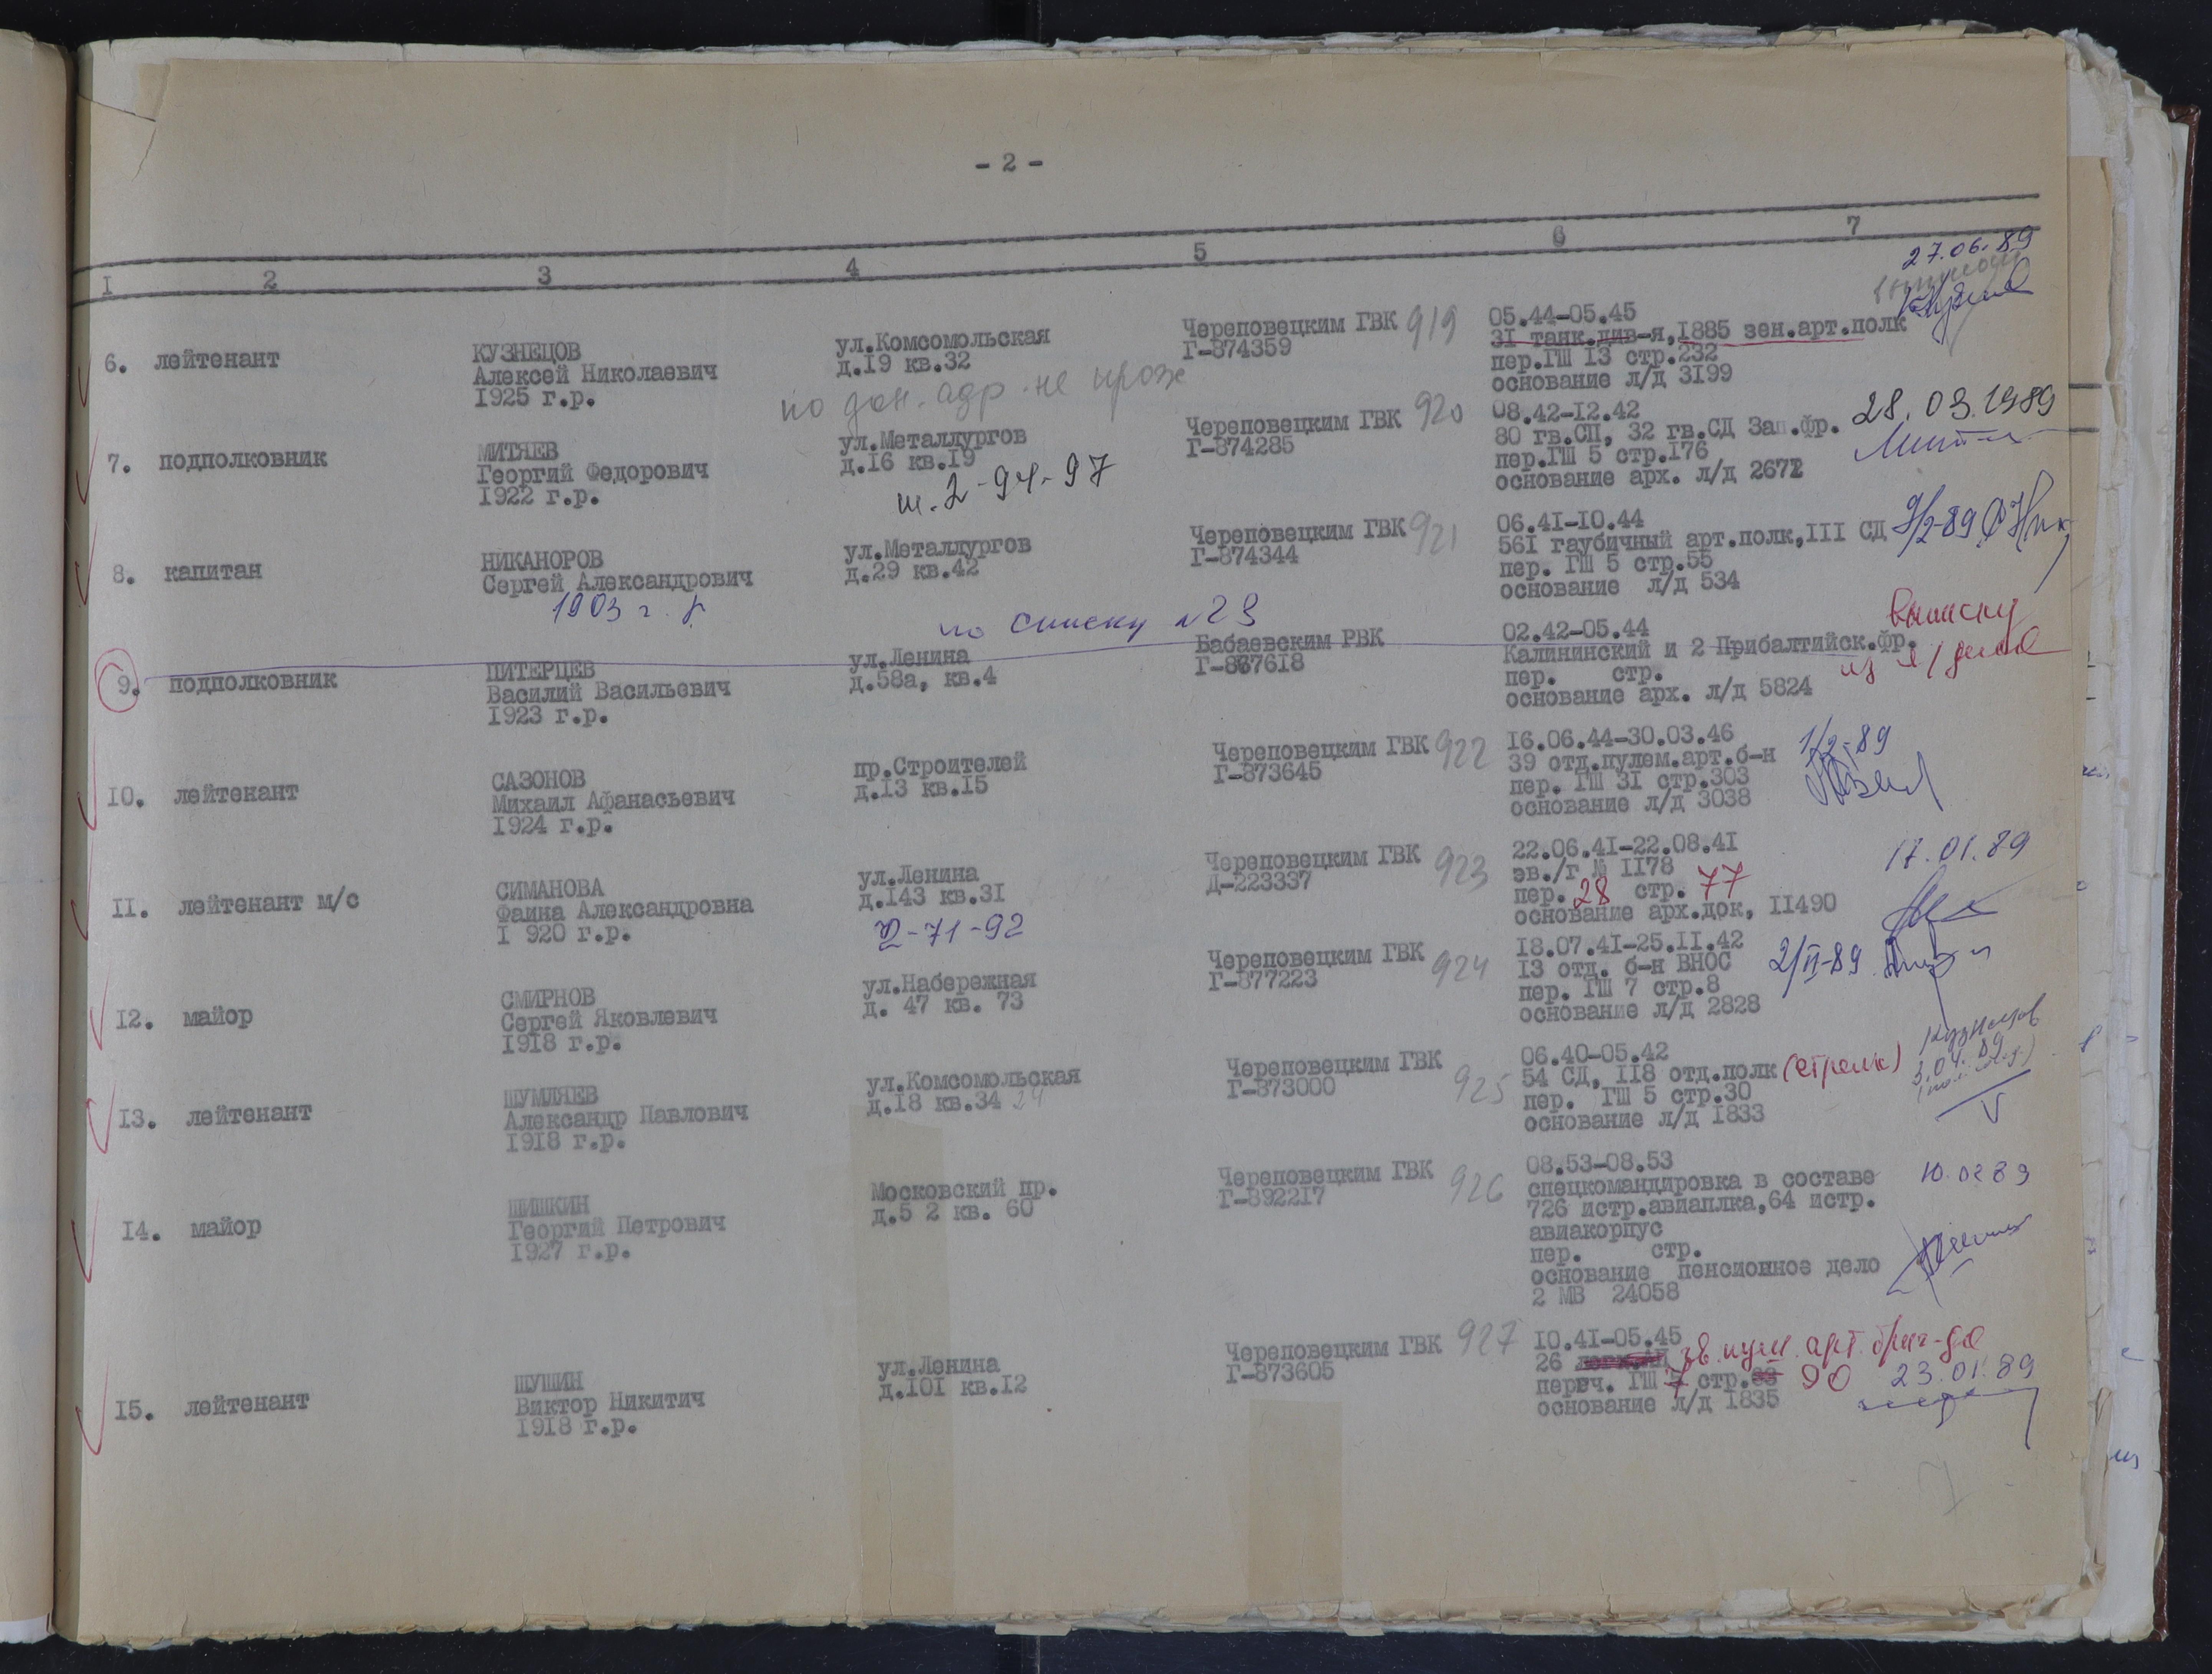 - 2 -
I 2 3 4 5 6 7
27.06.89
6. лейтенант
КУЗНЕЦОВ
Алексей Николаевич
1925 г.р.
ул.Комсомольская
д.I9 кв.32
по дан. адр. не прож
Череповецким ГВК 919
Г-874359
05.44-05.45
3I танк.див-я,I885 зен.арт.полк
пер.ГШ I3 стр.232
основание л/д 3I99
7. подполковник
МИТЯЕВ
Георгий Федорович
I922 г.р.
ул.Металлургов
д.I6 кв.I9
т. 2-94-97
Череповецким ГВК 920
Г-874285
08.42-I2.42
80 гв.СП, 32 гв.СД Зап.фр.
пер.ГШ 5 стр.I76
основание арх. л/д 2672
28.03.1989
8. капитан
НИКАНОРОВ
Сергей Александрович
1903 г.р.
ул.Металлургов
д.29 кв.42
Череповецким ГВК 921
Г-874344
06.4I-I0.44
56I гаубичный арт.полк,III СД
пер. ГШ 5 стр.55
основание л/д 534
9/2-89
по списку №23
9. подполковник
ПИТЕРЦЕВ
Василий Васильевич
I923 г.р.
ул.Ленина
д.58а, кв.4
Бабаевским РВК
Г-867618
02.42-05.44
Калининский и 2 Прибалтийск.фр.
пер. стр.
основание арх. л/д 5824
выписку
из л/дела
10. лейтенант
САЗОНОВ
Михаил Афанасьевич
I924 г.р.
пр.Строителей
д.I3 кв.I5
Череповецким ГВК 922
Г-873645
I6.06.44-30.03.46
39 отд.пулем.арт.б-н
пер. ГШ 3I стр.303
основание л/д 3038
1/2-89
II. лейтенант м/с
СИМАНОВА
Фаина Александровна
I 920 г.р.
ул.Ленина
д.I43 кв.3I
2-71-92
Череповецким ГВК 923
Д-223337
22.06.4I-22.08.4I
эв./г № II78
пер. 28 стр. 77
основание арх.док, II490
17.01.89
I2. майор
СМИРНОВ
Сергей Яковлевич
I9I8 г.р.
ул.Набережная
д. 47 кв. 73
Череповецким ГВК 924
Г-877223
I8.07.4I-25.II.42
I3 отд. б-н ВНОС
пер. ГШ 7 стр.8
основание л/д 2828
2/II-89
I3. лейтенант
ШУМЛЯЕВ
Александр Павлович
I9I8 г.р.
ул.Комсомольская
д.I8 кв.34 24
Череповецким ГВК 925
Г-873000
06.40-05.42
54 СД, II8 отд.полк (стрелк)
пер. ГШ 5 стр.30
основание л/д I833
3.04.89
I4. майор
ШИШКИН
Георгий Петрович
I927 г.р.
Московский пр.
д.5 2 кв. 60
Череповецким ГВК 926
Г-892217
08.53-08.53
спецкомандировка в составе
726 истр.авиаплка,64 истр.
авиакорпус
пер. стр.
основание пенсионное дело
2 МВ 24058
10.02 89
I5. лейтенант
ШУШИН
Виктор Никитич
I9I8 г.р.
ул.Ленина
д.I0I кв.I2
Череповецким ГВК 927
Г-873605
I0.4I-05.45
26 зв. пуш. арт. бриг-да
переч. ГШ 7 стр. 90
основание л/д I835
23.01.89